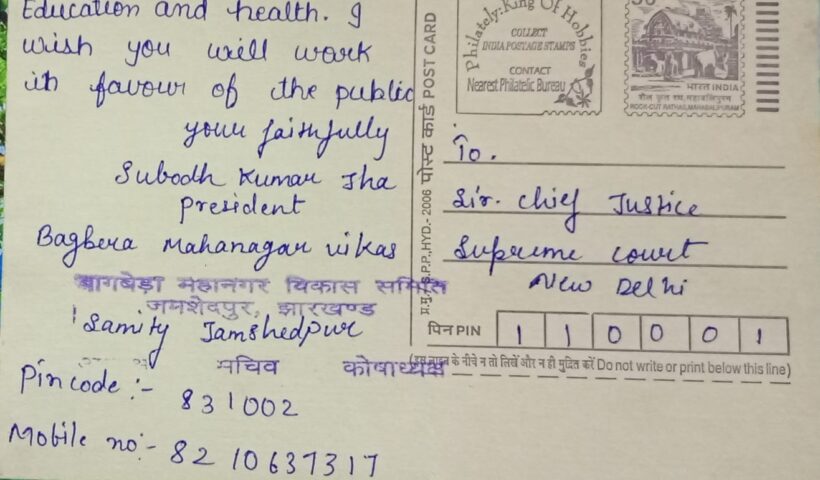 Education and health. I
wish you will work
in favour of the public
your faithfully
Subodh Kumar Jha
president
Bagbera Mahanagar vikas
बागबेड़ा महानगर विकास समिति
जमशेदपुर, झारखण्ड
Samity Jamshedpur
सचिव कोषाध्यक्ष
Pin code :- 831002
Mobile no:- 8210637317
पोस्ट कार्ड POST CARD
प्र.मु., S.P.P., HYD.- 2006
Philately: King Of Hobbies
COLLECT
INDIA POSTAGE STAMPS
CONTACT
Nearest Philatelic Bureau
50
भारत INDIA
शैल कृत रथ, महाबलिपुरम
ROCK-CUT RATHAS, MAHABALIPURAM
To.
Sir. Chief Justice
Supreme court
New Delhi
पिन PIN 110001
(इस लाइन के नीचे न तो लिखें और न ही मुद्रित करें Do not write or print below this line)